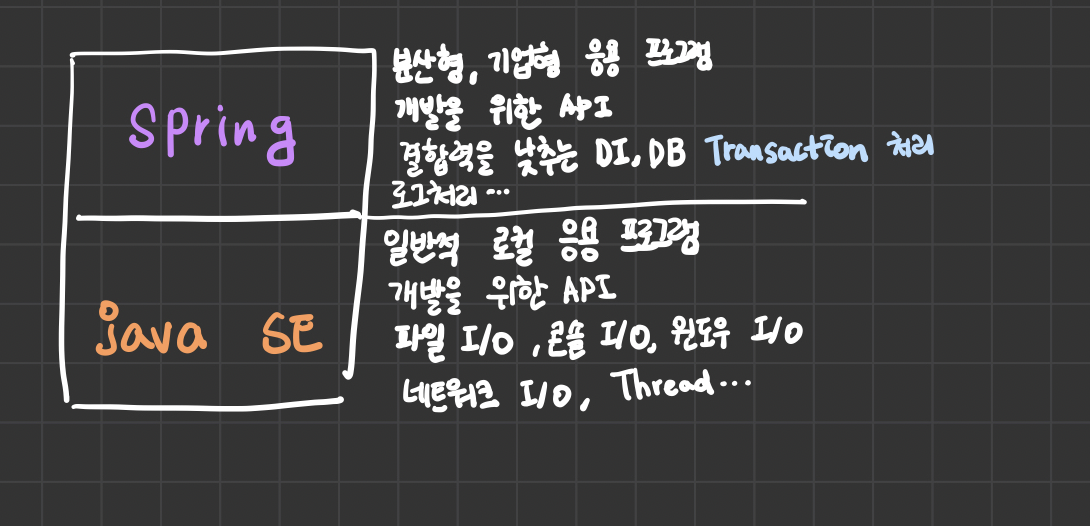 Spring
분산형, 기업형 응용 프로그램
개발을 위한 API
결합력을 낮추는 DI, DB Transaction 처리
로그처리...
java SE
일반적 로컬 응용 프로그램
개발을 위한 API
파일 I/O, 콘솔 I/O, 윈도우 I/O
네트워크 I/O, Thread...